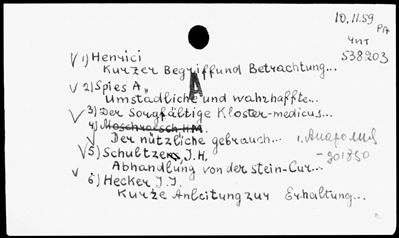 10.11.59
РА
чит
538203
√ 1) Henrici
Kurzer Begriff und Betrachtung...
√ 2) Spies A.
A
Umstadliche und wahrhaffte...
√ 3) Der Sorgfältige Kloster-medicus...
4) Moschraisch HM.
√ Der nützliche gebrauch...
√ 5) Schultzen, J.H.
- 901850
Abhandlung von der stein-Cur...
√ 6) Hecker J.J.
Kurze Anleitung zur Erhaltung...